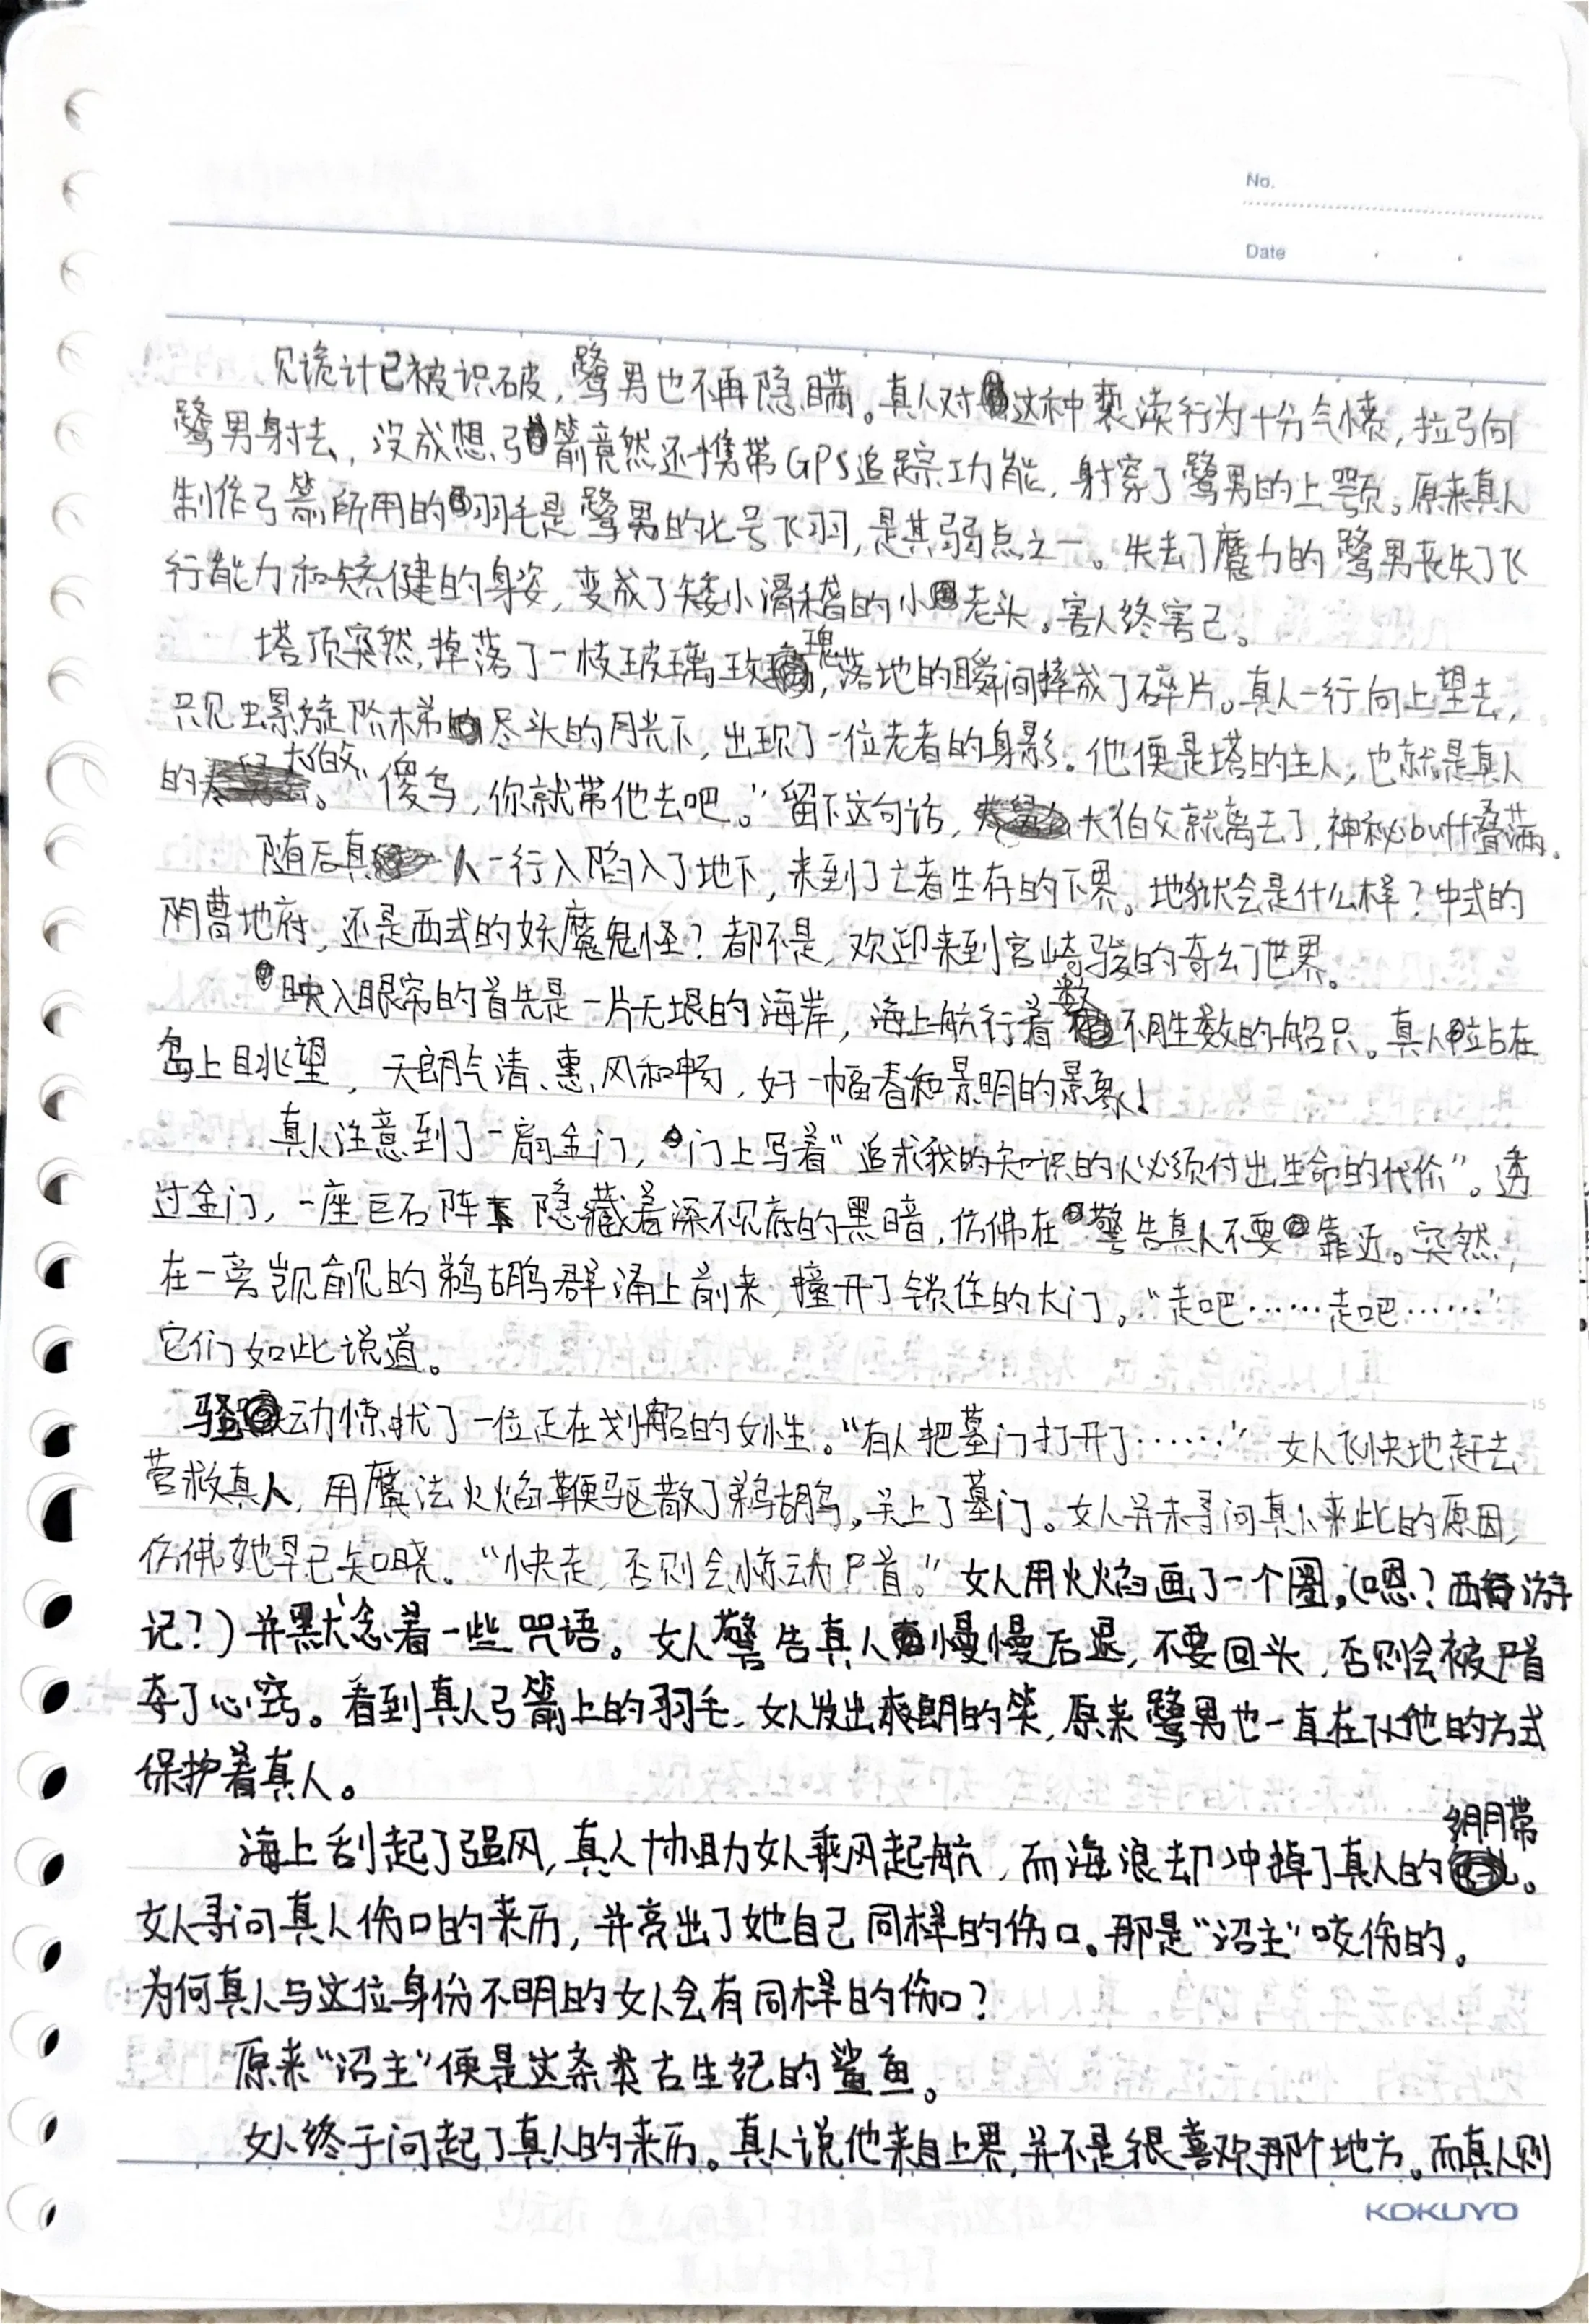 No.
Date
见诡计已被识破,鹭男也不再隐瞒。真人对这种亵渎行为十分气愤,拉弓向
鹭男射去,没成想弓箭竟然还携带GPS追踪功能,射穿了鹭男的上颚。原来真人
制作弓箭所用的羽毛是鹭男的七号飞羽,是其弱点之一。失去了魔力的鹭男丧失了飞
行能力和矫健的身姿,变成了矮小滑稽的小老头。害人终害己。
塔顶突然掉落了一枝玻璃玫瑰,落地的瞬间摔成了碎片。真人一行向上望去,
只见螺旋阶梯尽头的月光下,出现了一位老者的身影。他便是塔的主人,也就是真人
的大伯父。“傻鸟,你就带他去吧。”留下这句话,大伯父就离去了,神秘buff叠满。
随后真人一行人陷入了地下,来到了亡者生存的下界。地狱会是什么样?中式的
阴曹地府,还是西式的妖魔鬼怪?都不是,欢迎来到宫崎骏的奇幻世界。
映入眼帘的首先是一片无垠的海岸,海上航行着数不胜数的船只。真人站在
岛上眺望,天朗气清、惠风和畅,好一幅春和景明的景象!
真人注意到了一扇金门,门上写着“追求我的知识的人必须付出生命的代价”。透
过金门,一座巨石阵隐藏着深不见底的黑暗,仿佛在警告真人不要靠近。突然,
在一旁觊觎的鹈鹕群涌上前来,撞开了锁住的大门。“走吧……走吧……”
它们如此说道。
骚动惊扰了一位正在划船的女性。“有人把墓门打开了……”女人飞快地赶去
营救真人,用魔法火焰鞭驱散了鹈鹕,关上了墓门。女人并未寻问真人来此的原因,
仿佛她早已知晓。“快走,否则会惊动尸首。”女人用火焰画了一个圈,(嗯?西游
记?)并默念着一些咒语。女人警告真人慢慢后退,不要回头,否则会被尸首
夺了心窍。看到真人弓箭上的羽毛,女人发出爽朗的笑,原来鹭男也一直在以他的方式
保护着真人。
海上刮起了强风,真人协助女人乘风起航,而海浪却冲掉了真人的绷带。
女人寻问真人伤口的来历,并亮出了她自己同样的伤口。那是“沼主”咬伤的。
为何真人与这位身份不明的女人会有同样的伤口?
原来“沼主”便是这条类古生纪的鲨鱼。
女人终于问起了真人的来历。真人说他来自上界,并不是很喜欢那个地方。而真人则
KOKUYO